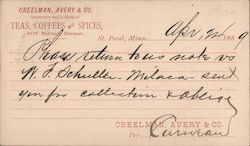 CREELMAN, AVERY & CO.
Importers and Jobbers of
TEAS, COFFEES AND SPICES,
St. Paul, Minn. Apr. 24 1889
Please return to us note vs
W. F. Schuller. Milaca sent
you for collection & oblige
CREELMAN, AVERY & CO.
Per